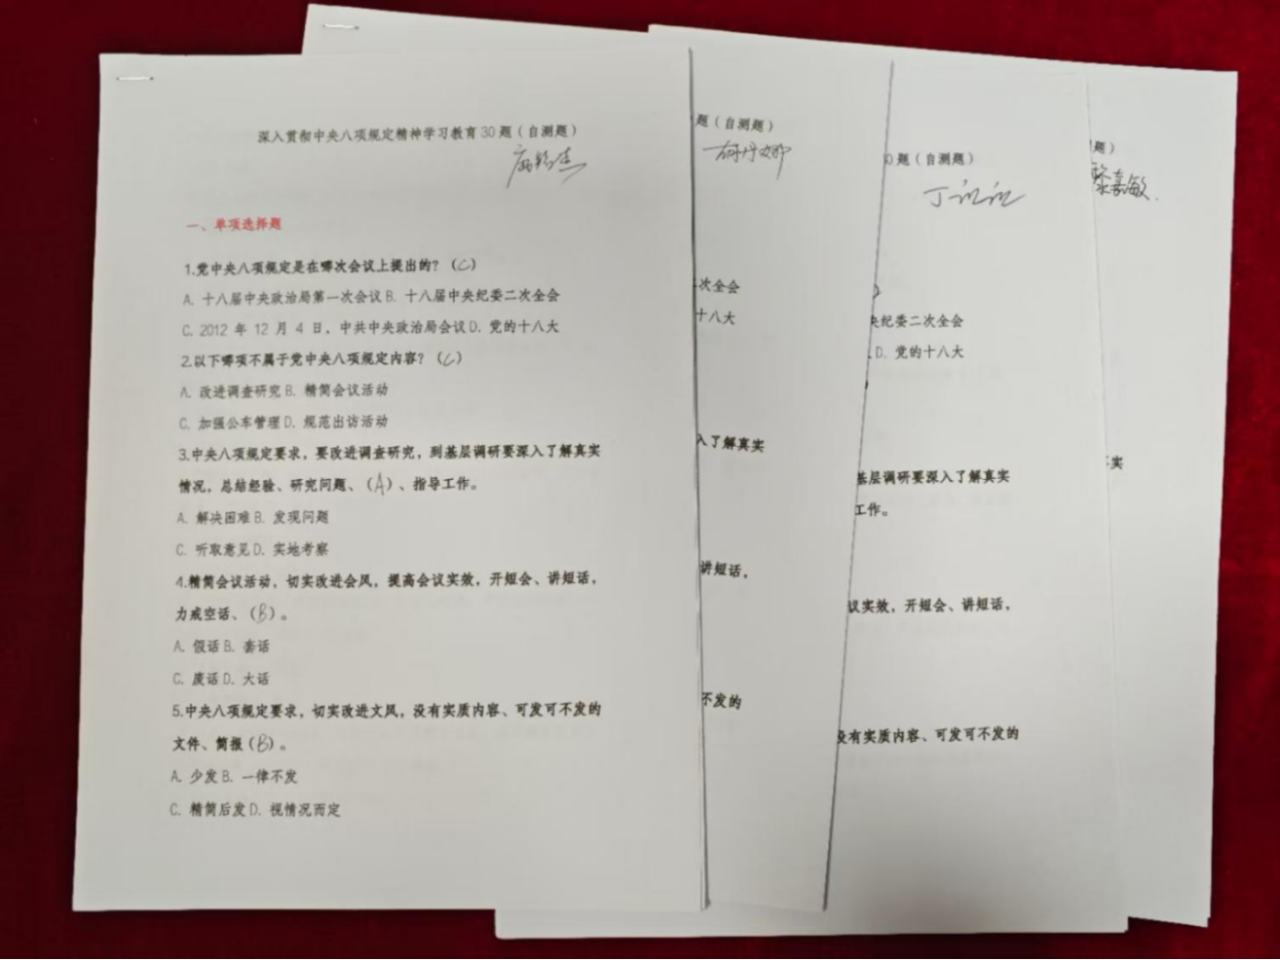 深入贯彻中央八项规定精神学习教育30题（自测题）
一、单项选择题
1.党中央八项规定是在哪次会议上提出的？（C）
A. 十八届中央政治局第一次会议 B. 十八届中央纪委二次全会
C. 2012 年 12 月 4 日，中共中央政治局会议 D. 党的十八大
2.以下哪项不属于党中央八项规定内容？（C）
A. 改进调查研究 B. 精简会议活动
C. 加强公车管理 D. 规范出访活动
3.中央八项规定要求，要改进调查研究，到基层调研要深入了解真实
情况，总结经验、研究问题、（A）、指导工作。
A. 解决困难 B. 发现问题
C. 听取意见 D. 实地考察
4.精简会议活动，切实改进会风，提高会议实效，开短会、讲短话，
力戒空话、（B）。
A. 假话 B. 套话
C. 废话 D. 大话
5.中央八项规定要求，切实改进文风，没有实质内容、可发可不发的
文件、简报（B）。
A. 少发 B. 一律不发
C. 精简后发 D. 视情况而定
题（自测题）
二次全会
十八大
入了解真实
讲短话，
不发的
0题（自测题）
丁讪讪
央纪委二次全会
D. 党的十八大
基层调研要深入了解真实
工作。
议实效，开短会、讲短话，
没有实质内容、可发可不发的
题）
黎嘉敏
实